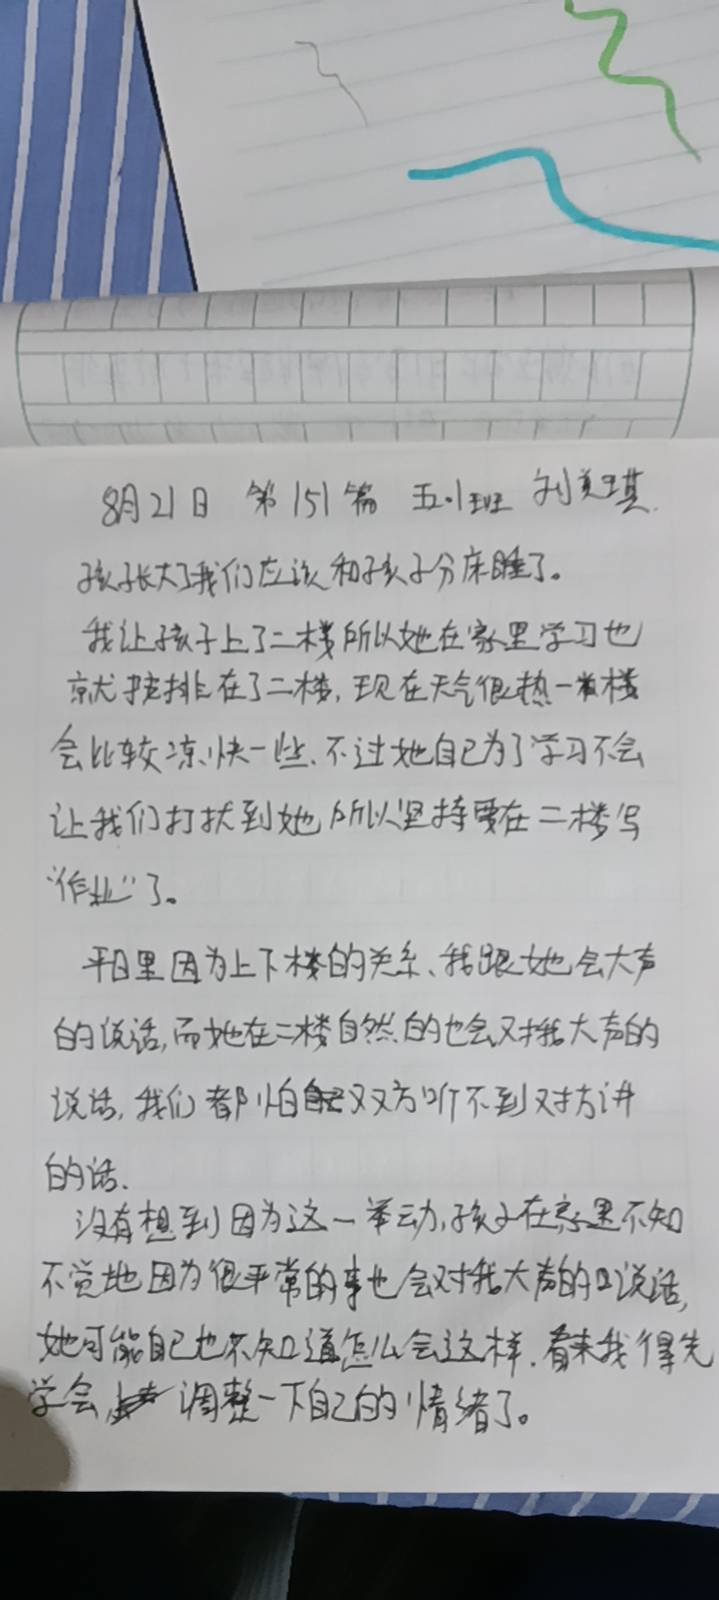 8月21日 第151篇 五.1班 刘美琪.
孩子长大了我们应该和孩子分床睡了。
我让孩子上了二楼所以她在家里学习也
就安排在了二楼,现在天气很热一楼
会比较凉快一些、不过她自己为了学习不会
让我们打扰到她所以坚持要在二楼写
“作业”了。
平日里因为上下楼的关系、我跟她会大声
的说话,而她在二楼自然的也会对我大声的
说话,我们都怕双方听不到对方讲
的话.
没有想到因为这一举动,孩子在家里不知
不觉地因为很平常的事也会对我大声的说话,
她可能自己也不知道怎么会这样.看来我得先
学会 调整一下自己的情绪了。